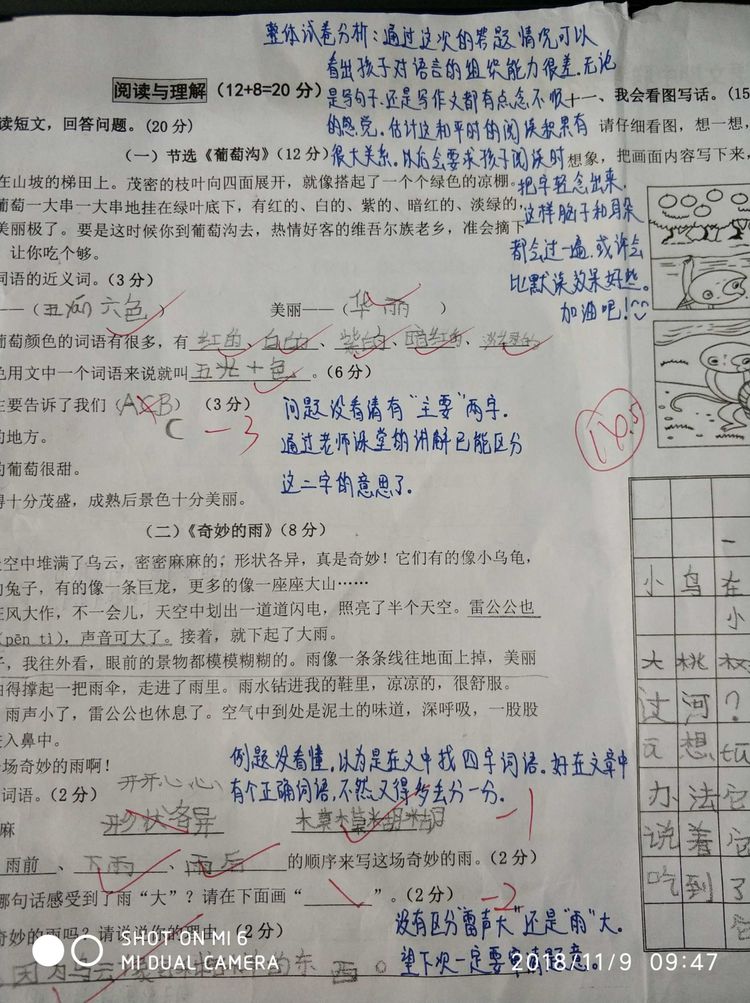 整体试卷分析：通过这次的答题情况可以
看出孩子对语言的组织能力很差.无论
是写句子.还是写作文都有点念不顺
的感觉.估计这和平时的阅读积累有
很大关系.以后会要求孩子阅读时
把字轻念出来.
这样脑子和耳朵
都会过一遍.或许会
比默读效果好些。
加油吧!
阅读与理解（12+8=20 分）
读短文，回答问题。(20 分)
（一）节选《葡萄沟》(12 分)
在山坡的梯田上。茂密的枝叶向四面展开，就像搭起了一个个绿色的凉棚。
葡萄一大串一大串地挂在绿叶底下，有红的、白的、紫的、暗红的、淡绿的，
美丽极了。要是这时候你到葡萄沟去，热情好客的维吾尔族老乡，准会摘下
让你吃个够。
词语的近义词。(3 分)
——（五颜六色） 美丽——（华丽）
葡萄颜色的词语有很多，有红的、白的、紫的、暗红的、淡绿的
色用文中一个词语来说就叫五光十色。(6 分)
主要告诉了我们（ACB） (3 分)
C -3
问题没看清有“主要”两字.
通过老师课堂的讲解已能区分
这二字的意思了.
的地方。
的葡萄很甜。
得十分茂盛，成熟后景色十分美丽。
（二）《奇妙的雨》(8 分)
天空中堆满了乌云，密密麻麻的；形状各异，真是奇妙！它们有的像小乌龟，
的兔子，有的像一条巨龙，更多的像一座座大山……
狂风大作，不一会儿，天空中划出一道道闪电，照亮了半个天空。雷公公也
(pēn tì)，声音可大了。接着，就下起了大雨。
子，我往外看，眼前的景物都模模糊糊的。雨像一条条线往地面上掉，美丽
由得撑起一把雨伞，走进了雨里。雨水钻进我的鞋里，凉凉的，很舒服。
雨声小了，雷公公也休息了。空气中到处是泥土的味道，深呼吸，一股股
进入鼻中。
场奇妙的雨啊！
例题没看懂.以为是在文中找四字词语.好在文章中
有个正确词语,不然又得多去分一分.
词语。(2 分) 开开心心
麻 形状各异 模模糊糊 -1
雨前、下雨、雨后的顺序来写这场奇妙的雨。(2 分)
哪句话感受到了雨“大”？请在下面画“ ”。(2 分) -2
没有区分“雷声大”还是“雨”大.
望下次一定要审清题意。
奇妙的雨吗？请说说你的理由。(2 分)
因为乌云
的东西。
十一、我会看图写话。(15
请仔细看图，想一想，
想象，把画面内容写下来，
一
小鸟在
小
大桃
过河？
玩想
办法它
说着它
吃到了
SHOT ON MI 6
MI DUAL CAMERA
2018/11/9 09:47